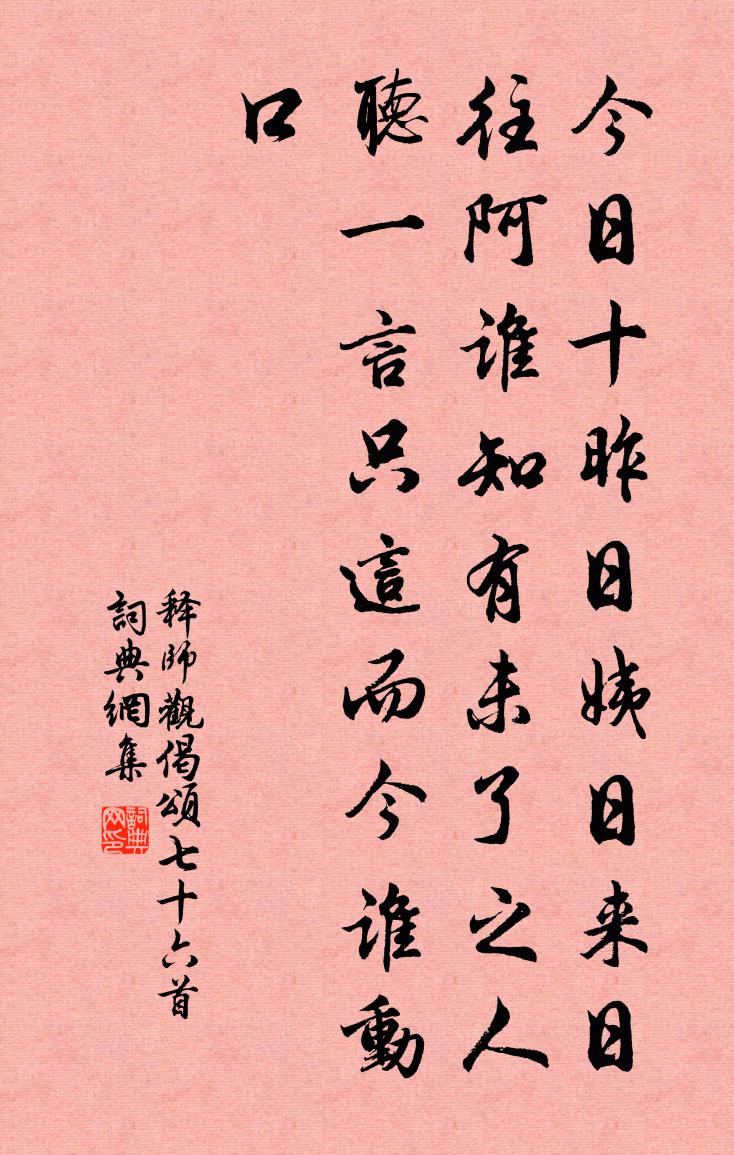 今日十昨日姨日来日
往阿谁知有未了之人
聽一言只這而今谁動
口
释師觀偈頌七十六首
詞典網集
詞典网印